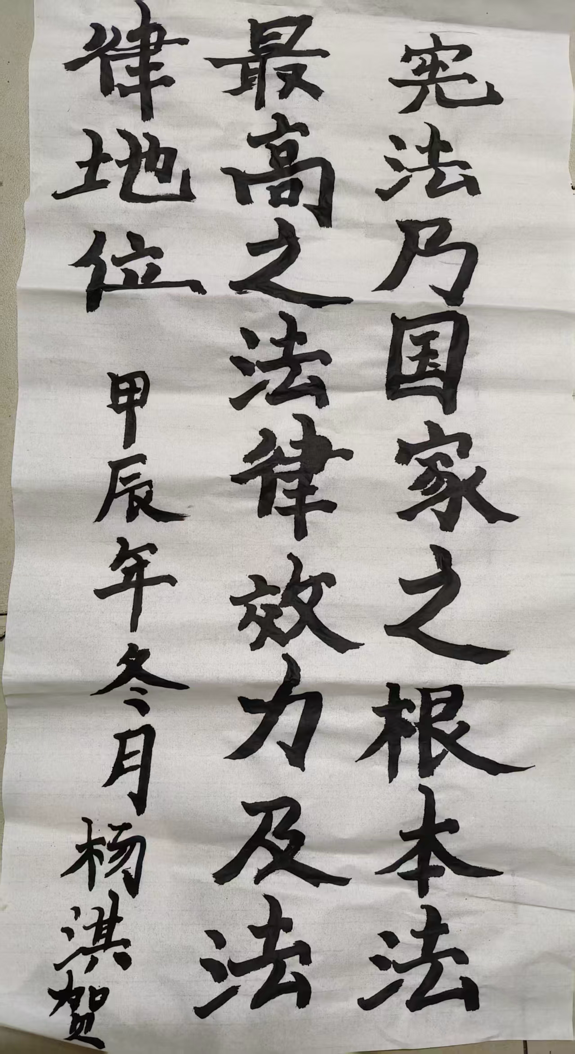 宪法乃国家之根本法
最高之法律效力及法
律地位
甲辰年冬月杨淇贺